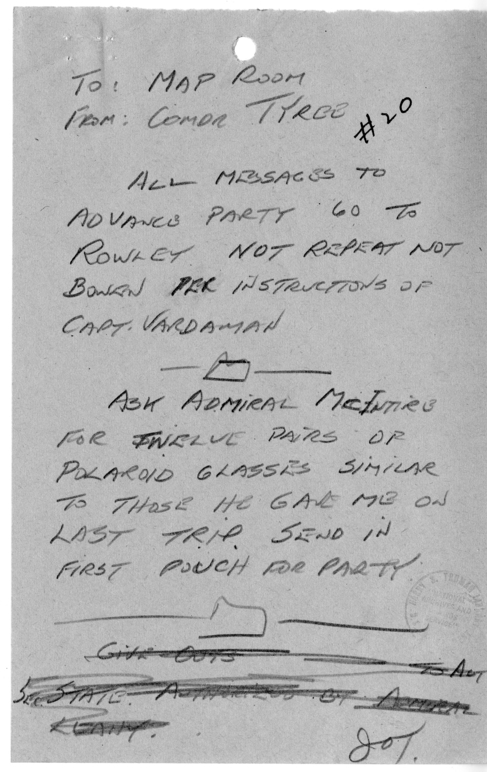 TO: MAP ROOM
FROM: COMDR TYREE
#20
ALL MESSAGES TO
ADVANCE PARTY GO TO
ROWLEY NOT REPEAT NOT
BOWEN PER INSTRUCTIONS OF
CAPT. VARDAMAN
ASK ADMIRAL McINTIRE
FOR TWELVE PAIRS OF
POLAROID GLASSES SIMILAR
TO THOSE HE GAVE ME ON
LAST TRIP. SEND IN
FIRST POUCH FOR PARTY
GIVE OUTS
TO ACT
SEC STATE. AUTHORIZED BY ADMIRAL
LEAHY.